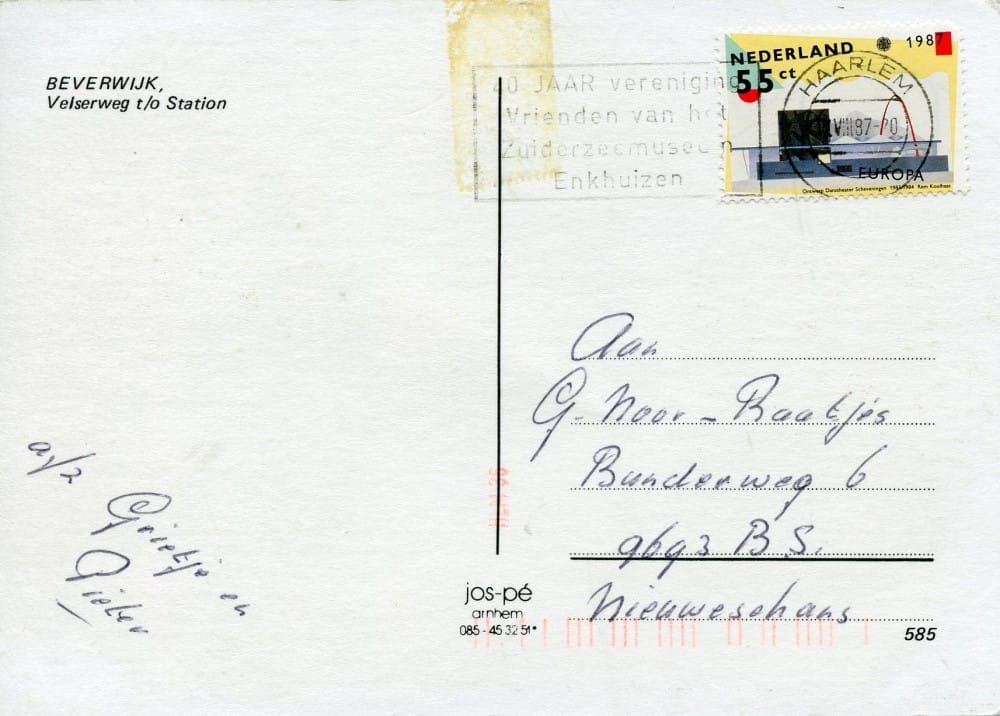 BEVERWIJK,
Velserweg t/o Station
40 JAAR vereniging
Vrienden van het
Zuiderzeemuseum
Enkhuizen
NEDERLAND
55 ct
1987
HAARLEM
VIII 87-20
EUROPA
Ontwerp Danstheater Scheveningen 1983/1984 Rem Koolhaas
Aan
G. Noor-Raatjes
Bunderweg 6
9693 B.S.
Nieuweschans
a/z
Grietje en
Pieter
jos-pé
arnhem
085-45 32 51*
585